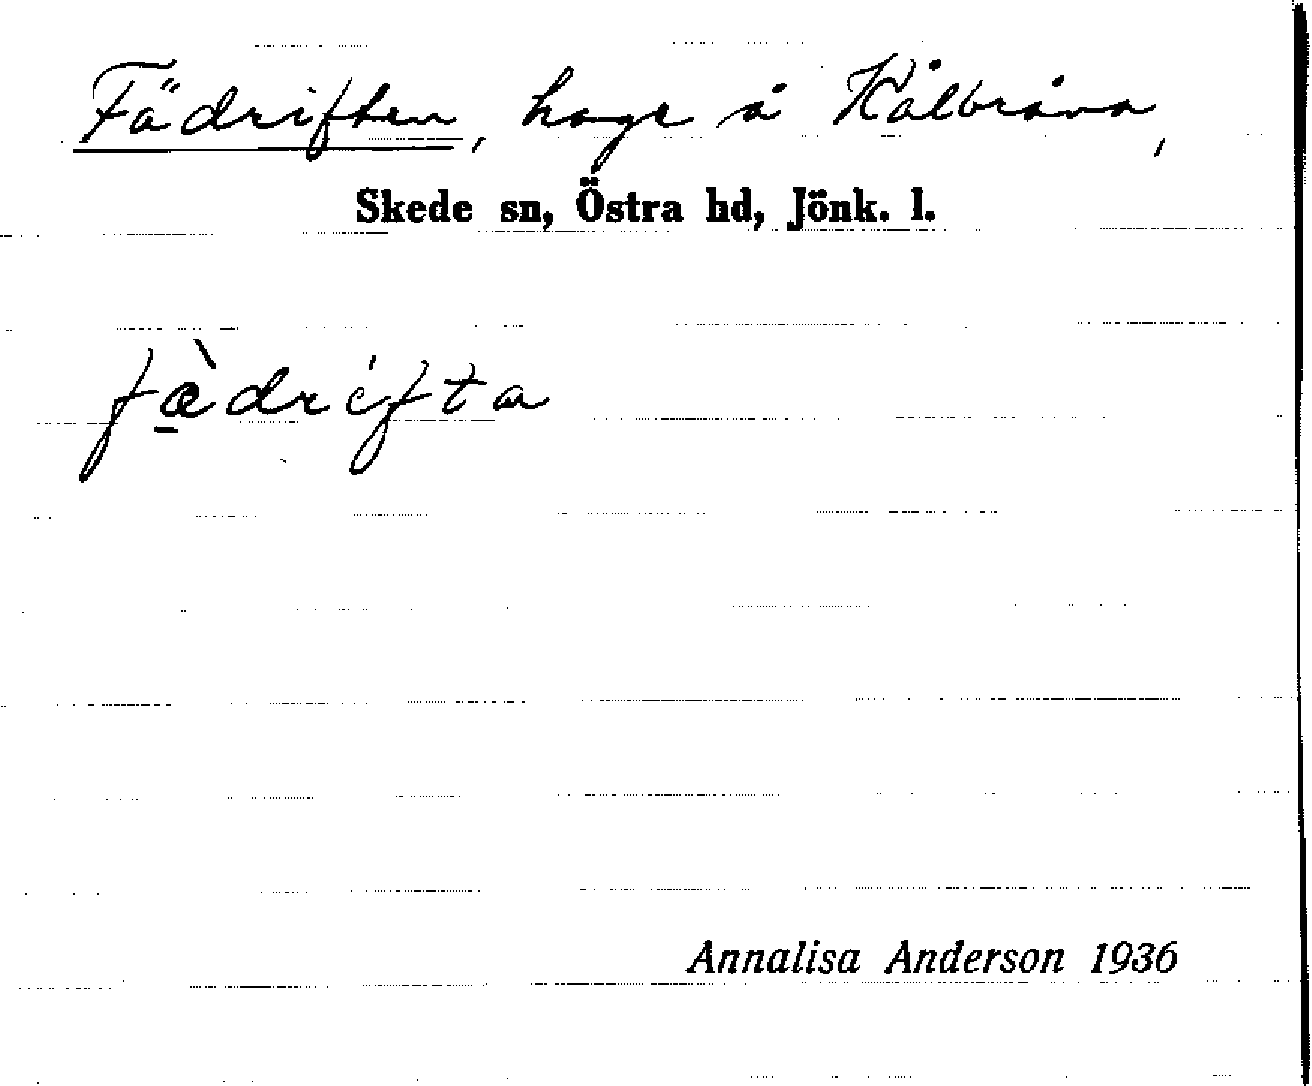 Fädriften, hage å Kålbråna,
Skede sn, Östra hd, Jönk. l.
fæ̠̀drífta
Annalisa Anderson 1936